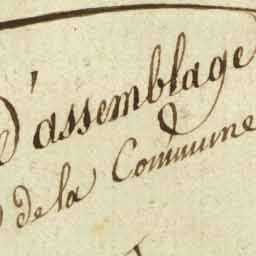 D'assemblage
de la Commune